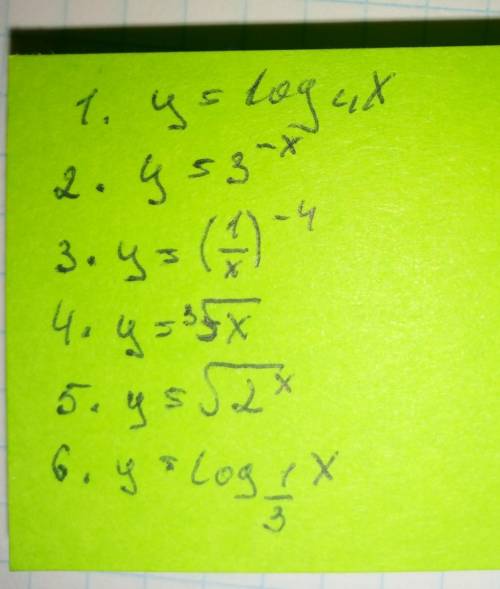 1. y = log₄x
2. y = 3⁻ˣ
3. y = (1/x)⁻⁴
4. y = ³√x
5. y = √2ˣ
6. y = log_1/3 x